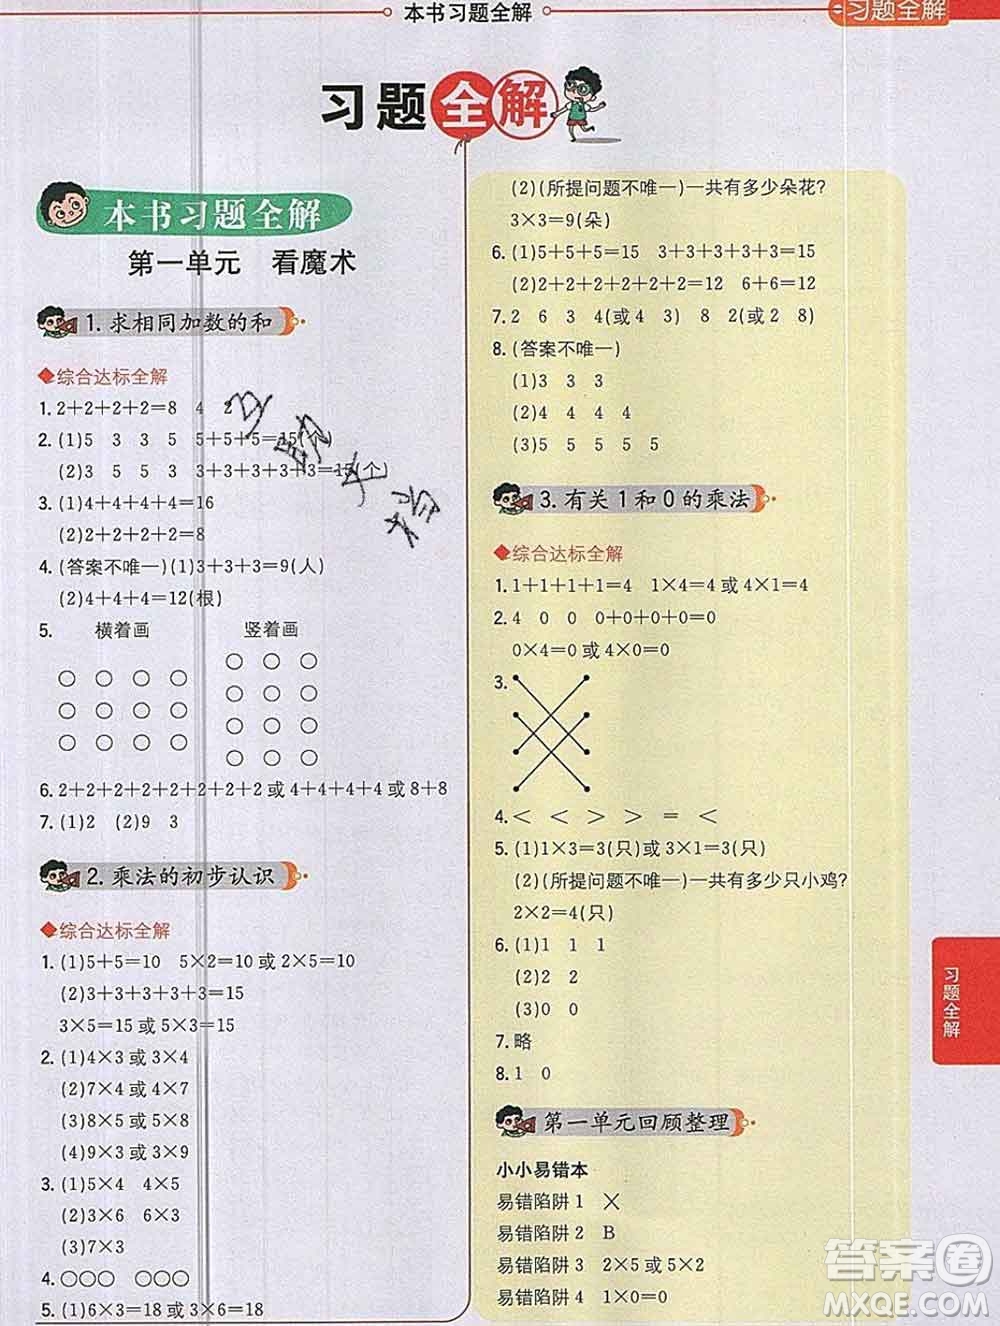 本书习题全解
习题全解
习题全解
本书习题全解
第一单元 看魔术
1. 求相同加数的和
◆综合达标全解
1. 2+2+2+2=8 4 2
2. (1)5 3 3 5 5+5+5=15
(2)3 5 5 3 3+3+3+3+3=15(个)
3. (1)4+4+4+4=16
(2)2+2+2+2=8
4. (答案不唯一)(1)3+3+3=9(人)
(2)4+4+4=12(根)
5. 横着画 竖着画
○ ○ ○ ○ ○ ○ ○
○ ○ ○ ○ ○ ○ ○
○ ○ ○ ○ ○ ○ ○
○ ○ ○
6. 2+2+2+2+2+2+2+2 或 4+4+4+4 或 8+8
7. (1)2 (2)9 3
2. 乘法的初步认识
◆综合达标全解
1. (1)5+5=10 5×2=10 或 2×5=10
(2)3+3+3+3+3=15
3×5=15 或 5×3=15
2. (1)4×3 或 3×4
(2)7×4 或 4×7
(3)8×5 或 5×8
(4)9×3 或 3×9
3. (1)4×5 4×5
(2)3×6 6×3
(3)7×3
4. ○○○ ○○○
5. (1)6×3=18 或 3×6=18
(2)(所提问题不唯一)一共有多少朵花?
3×3=9(朵)
6. (1)5+5+5=15 3+3+3+3+3=15
(2)2+2+2+2+2+2=12 6+6=12
7. 2 6 3 4(或 4 3) 8 2(或 2 8)
8. (答案不唯一)
(1)3 3 3
(2)4 4 4 4
(3)5 5 5 5 5
3. 有关 1 和 0 的乘法
◆综合达标全解
1. 1+1+1+1=4 1×4=4 或 4×1=4
2. 4 0 0 0+0+0+0=0
0×4=0 或 4×0=0
3.
4. < < > > = <
5. (1)1×3=3(只)或 3×1=3(只)
(2)(所提问题不唯一)一共有多少只小鸡?
2×2=4(只)
6. (1)1 1 1
(2)2 2
(3)0 0
7. 略
8. 1 0
第一单元回顾整理
小小易错本
易错陷阱 1 ×
易错陷阱 2 B
易错陷阱 3 2×5 或 5×2
易错陷阱 4 1×0=0
习题全解
答案圈
MXQE.COM